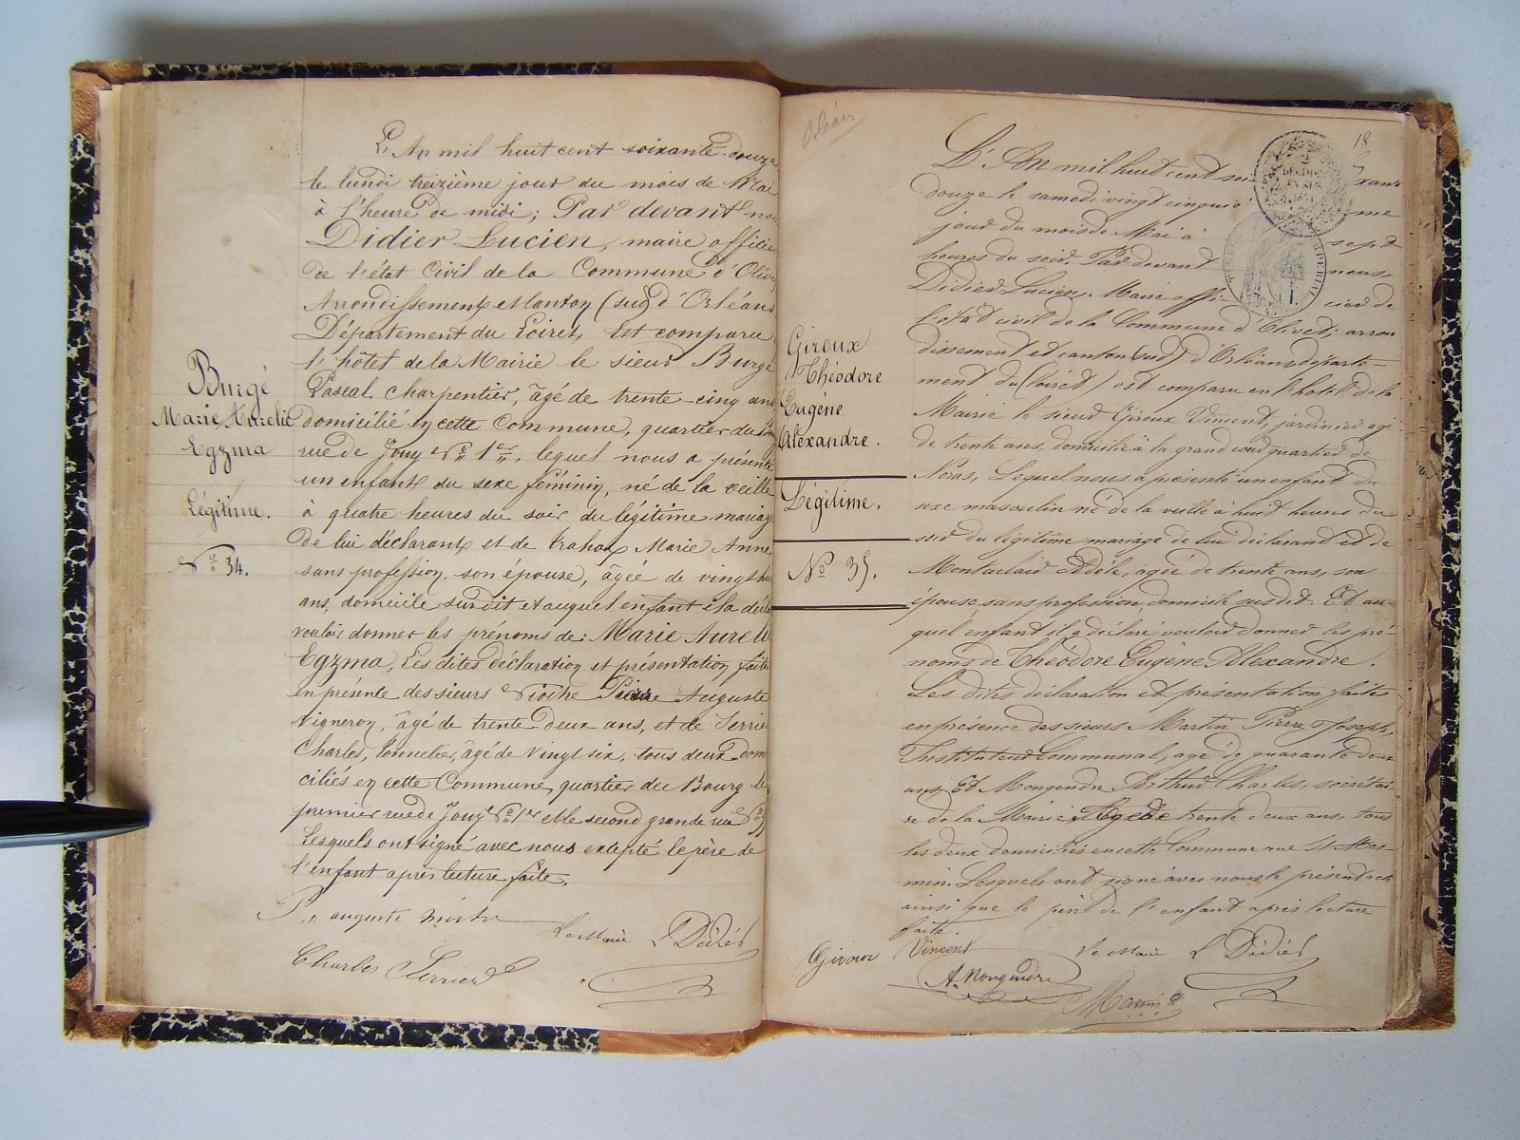 L'An mil huit cent soixante-douze
le lundi treizième jour du mois de Mai
à l'heure de midi; Par devant nous
Didier Lucien, maire officier
de l'état Civil de la Commune d'Olivet
Arrondissement et Canton (sud) d'Orléans
Département du Loiret, est comparu
l'hôtel de la Mairie le sieur Burgé
Pascal charpentier, âgé de trente-cinq ans
domicilié en cette Commune, quartier du
rue de Jouy No 1er, lequel nous a présenté
un enfant du sexe féminin, né de la veille
à quatre heures du soir du légitime mariage
de lui déclarant et de Marie Anne
sans profession, son épouse, âgée de vingt
ans, domicile susdit et auquel enfant il a déclaré
vouloir donner les prénoms de: Marie Aurelie
Egzma, Les dites déclaration et présentation faites
en présence des sieurs Nioche Pierre Auguste
vigneron, âgé de trente deux ans, et de
Charles, tonnelier, âgé de vingt six, tous deux domi
ciliés en cette Commune, quartier du Bourg le
premier rue de Jouy No 1er et le second grande rue
Lesquels ont signé avec nous excepté le père de
l'enfant après lecture faite.
auguste
Le Maire L Didier
Charles
Burgé
Marie Aurelie
Egzma
Légitime.
No 34.
18
L'An mil huit cent soixante
douze le samedi vingt cinquième
jour du mois de Mai à sept
heures du soir. Par devant nous,
Didier Lucien, Maire officier de
l'état civil de la Commune d'Olivet; arron
dissement et canton (sud) d'Orléans départe-
ment du (Loiret) est comparu en l'hôtel de la
Mairie le sieur Gireux Vincent, jardinier âgé
de trente ans, domicilié à la grand cour quartier de
lequel nous a présenté un enfant du
sexe masculin né de la veille à huit heures du
soir du légitime mariage de lui déclarant et de
Adèle, agée de trente ans, son
épouse sans profession, domicile susdit. Et au-
quel enfant il a déclaré vouloir donner les pré-
noms de Théodore Eugène Alexandre.
Les dites déclaration et présentation faites
en présence des sieurs Martin Pierre Joseph,
Instituteur Communal, agé de quarante deux
ans, Et Mongendre Arthur Charles, secrétai
re de la Mairie, Agé de trente deux ans, tous
les deux domiciliés en cette Commune rue St Mes-
min. Lesquels ont signé avec nous le présent acte
ainsi que le père de l'enfant après lecture
faite.
Gireux Vincent
Le Maire L Didier
A. Mongendre
Martin
Gireux
Théodore
Eugène
Alexandre.
Légitime.
No 35.